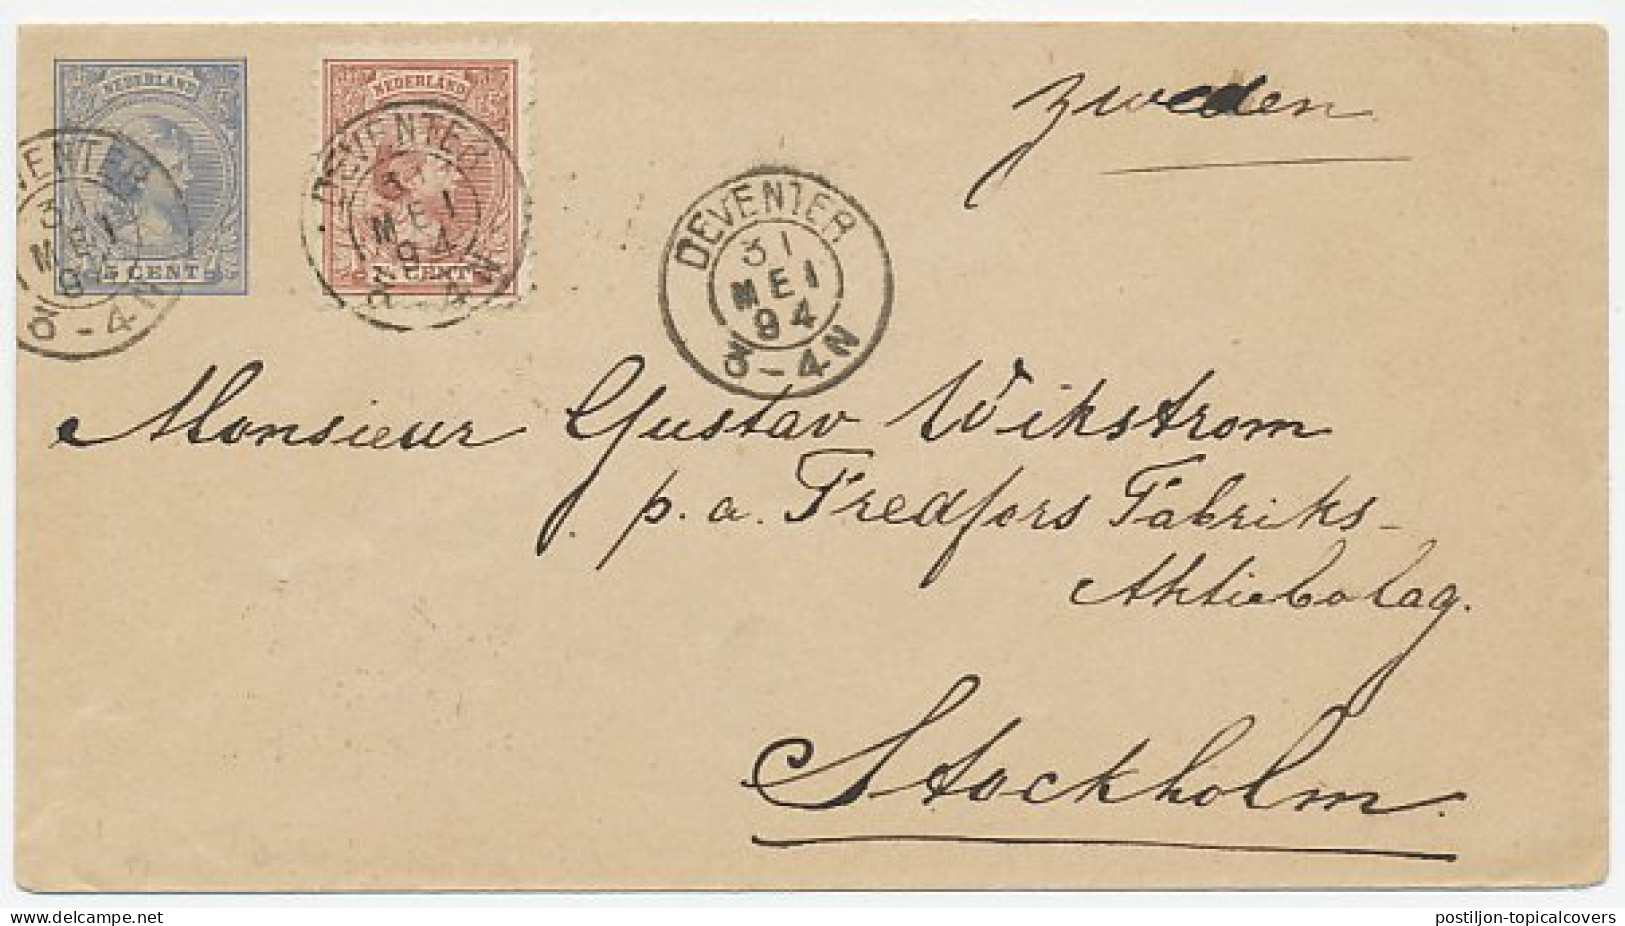 NEDERLAND
5 CENT
NEDERLAND
7½ CENT
DEVENTER
31
MEI
94
3-4N
DEVENTER
31
MEI
94
3-4N
DEVENTER
31
MEI
94
3-4N
Zweden
Monsieur Gustav Wikstrom
p. a. Fredfors Fabriks-
Aktiebolag.
Stockholm.
postiljon-topicalcovers